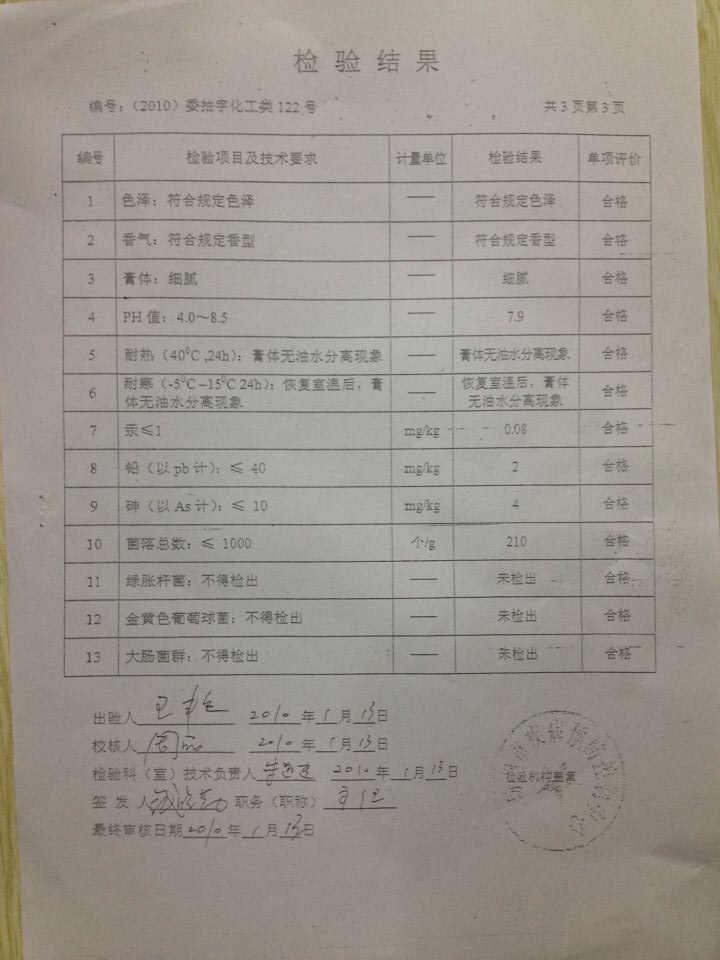 检验结果
编号:（2010）委抽字化工类122号 共3页第3页
编号 检验项目及技术要求 计量单位 检验结果 单项评价
1 色泽：符合规定色泽 —— 符合规定色泽 合格
2 香气：符合规定香型 —— 符合规定香型 合格
3 膏体：细腻 —— 细腻 合格
4 PH值：4.0～8.5 —— 7.9 合格
5 耐热（40⁰C ,24h）：膏体无油水分离现象 —— 膏体无油水分离现象 合格
6 耐寒（-5⁰C –15⁰C 24h）：恢复室温后，膏体无油水分离现象 —— 恢复室温后，膏体无油水分离现象 合格
7 汞≤1 mg/kg 0.08 合格
8 铅（以pb计）：≤ 40 mg/kg 2 合格
9 砷（以As计）：≤ 10 mg/kg 4 合格
10 菌落总数：≤ 1000 个/g 210 合格
11 绿脓杆菌：不得检出 —— 未检出 合格
12 金黄色葡萄球菌：不得检出 —— 未检出 合格
13 大肠菌群：不得检出 —— 未检出 合格
出验人 2010年1月13日
校核人 2010年1月13日
检验科（室）技术负责人 2010年1月13日
签发人 职务（职称）
最终审核日期2010年1月13日
检验机构盖章